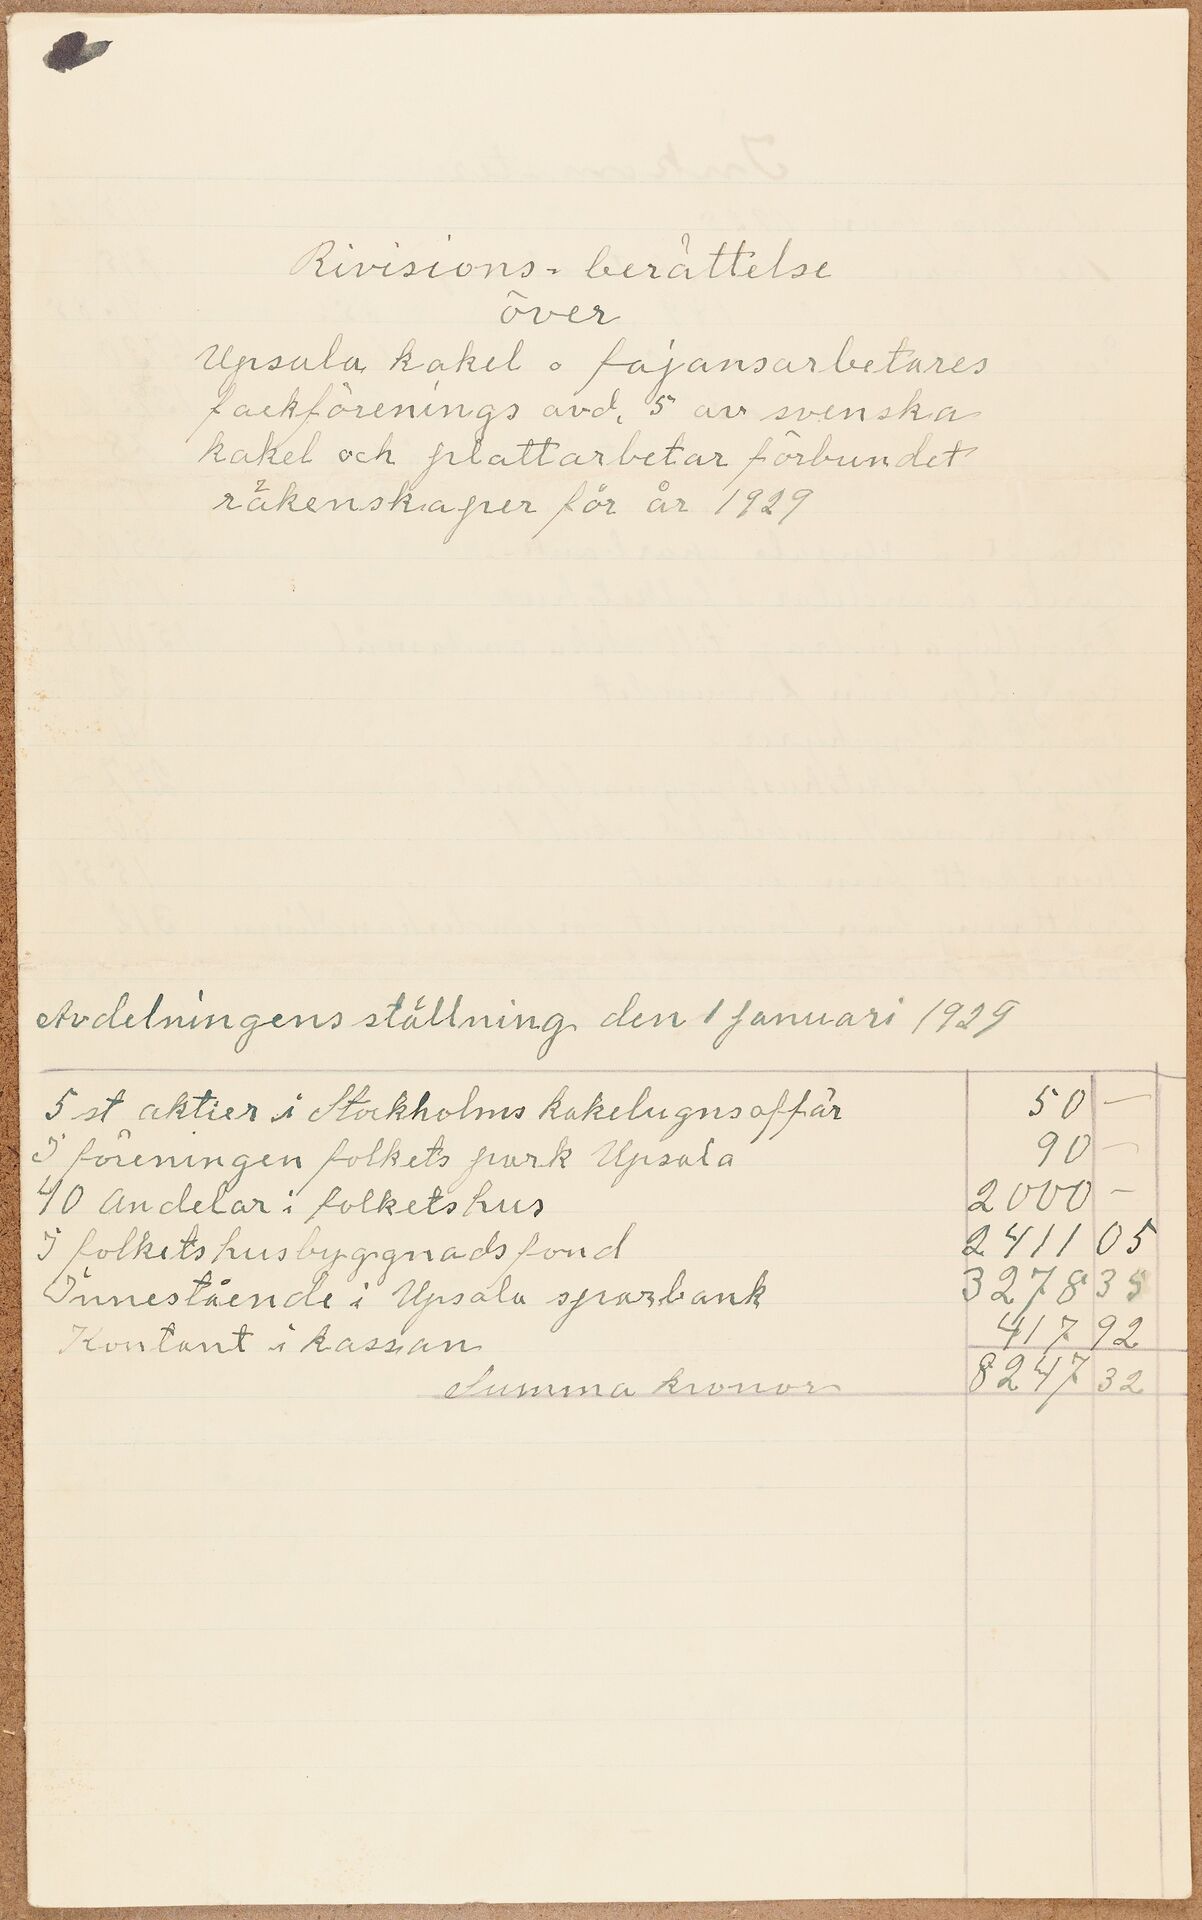 Rivisions-berättelse
över
Upsala kakel o fajansarbetares
fackförenings avd. 5 av svenska
kakel och plattarbetar förbundet
räkenskaper för år 1929
Avdelningens ställning den 1 Januari 1929
5 st aktier i Stockholms kakelugnsaffär 50 —
I föreningen folkets park Upsala 90 —
40 Andelar i folketshus 2000 —
I folketshusbyggnadsfond 2411 05
Innestående i Upsala sparbank 3278 35
Kontant i kassan 417 92
Summa kronor 8247 32